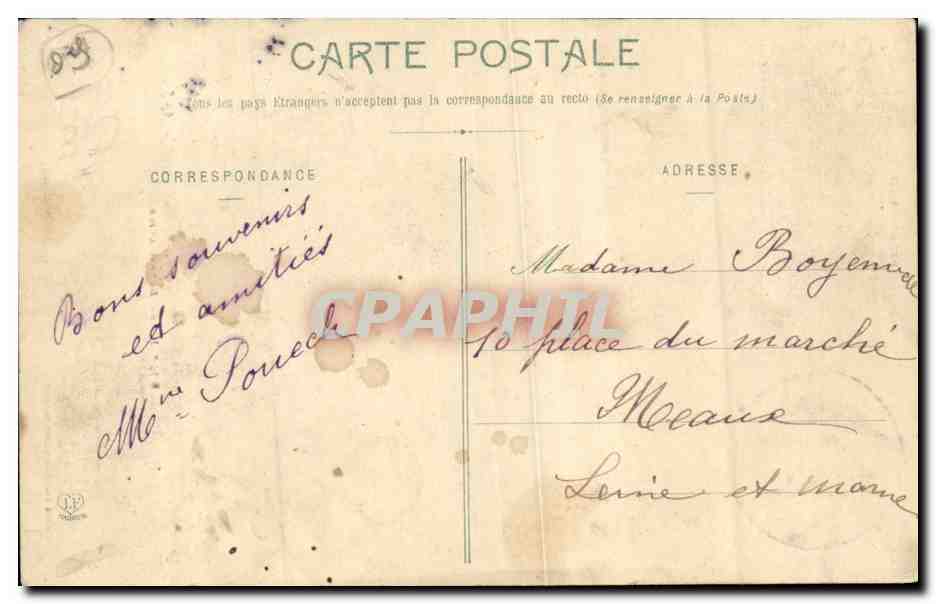 CARTE POSTALE
Tous les pays Etrangers n'acceptent pas la correspondance au recto (Se renseigner à la Poste)
CORRESPONDANCE
ADRESSE
Bons souvenirs
et amitiés
Mme Pouech
Madame
10 place du marché
Meaux
Seine et marne
CPAPHIL